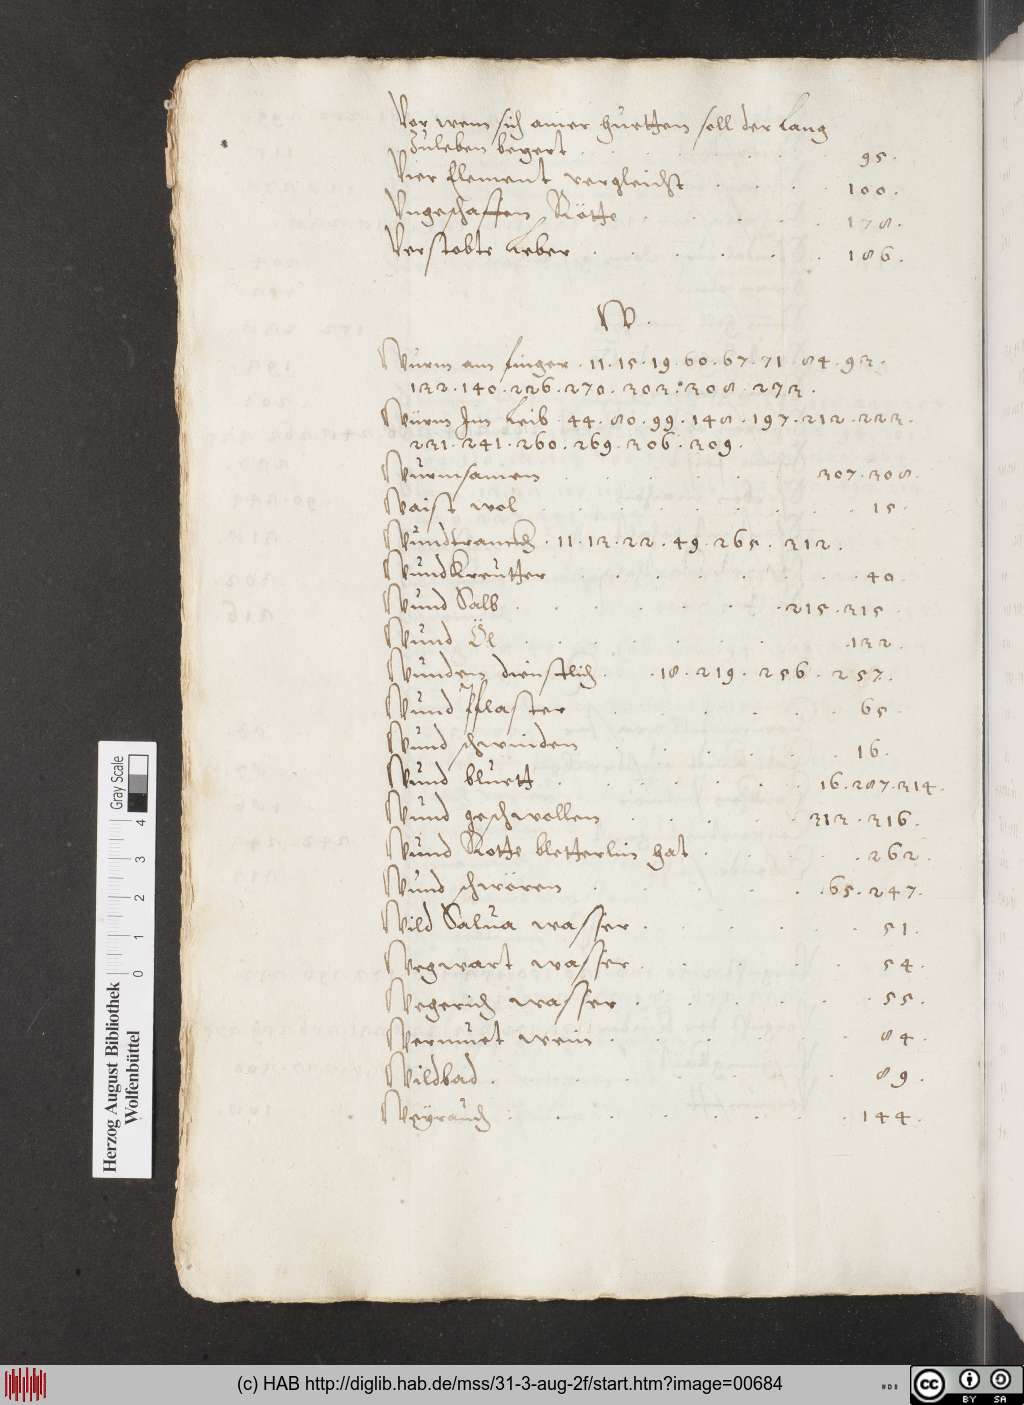 Vor wem sich ainer huetten soll der lang
Zuleben begert . . . . . . 95.
Vier Element vergleicht . . . . 100.
Ungeschaffen Rötte . . . . . 178.
Verstobte Leber . . . . . . 186.
W.
Wurm am finger . 11. 15. 19. 60. 67. 71. 84. 93.
132. 140. 226. 270. 303. 308. 273.
Würm Im Leib . 44. 80. 99. 148. 197. 212. 223.
231. 241. 260. 269. 306. 309.
Wurmsamen . . . . . 307. 308.
Waist wol . . . . . . . . 15.
Wundtranckh . 11. 13. 22. 49. 265. 312.
WundKreutter . . . . . . 40.
Wund Salb . . . . . . . 215. 315.
Wund Öl . . . . . . . 132.
Wunden dienstlich . . 18. 219. 256. 257.
Wund Pflaster . . . . . 65.
Wund schwinden . . . . . . 16.
Wund bluett . . . . . . 16. 287. 314.
Wund geschwollen . . . . . 313. 316.
Wund Rotte bletterlin hat . . . . 262.
Wund schwören . . . . . 65. 247.
Wild Salua wasser . . . . . 51.
Wegwart wasser . . . . . 54.
Wegerich wasser . . . . . . 55.
Wermuet wein . . . . . . 84.
Wildbad . . . . . . . 89.
Weyrauch . . . . . . . 144.
Herzog August Bibliothek
Wolfenbüttel
0 1 2 3 4
Gray Scale
(c) HAB http://diglib.hab.de/mss/31-3-aug-2f/start.htm?image=00684
cc BY SA